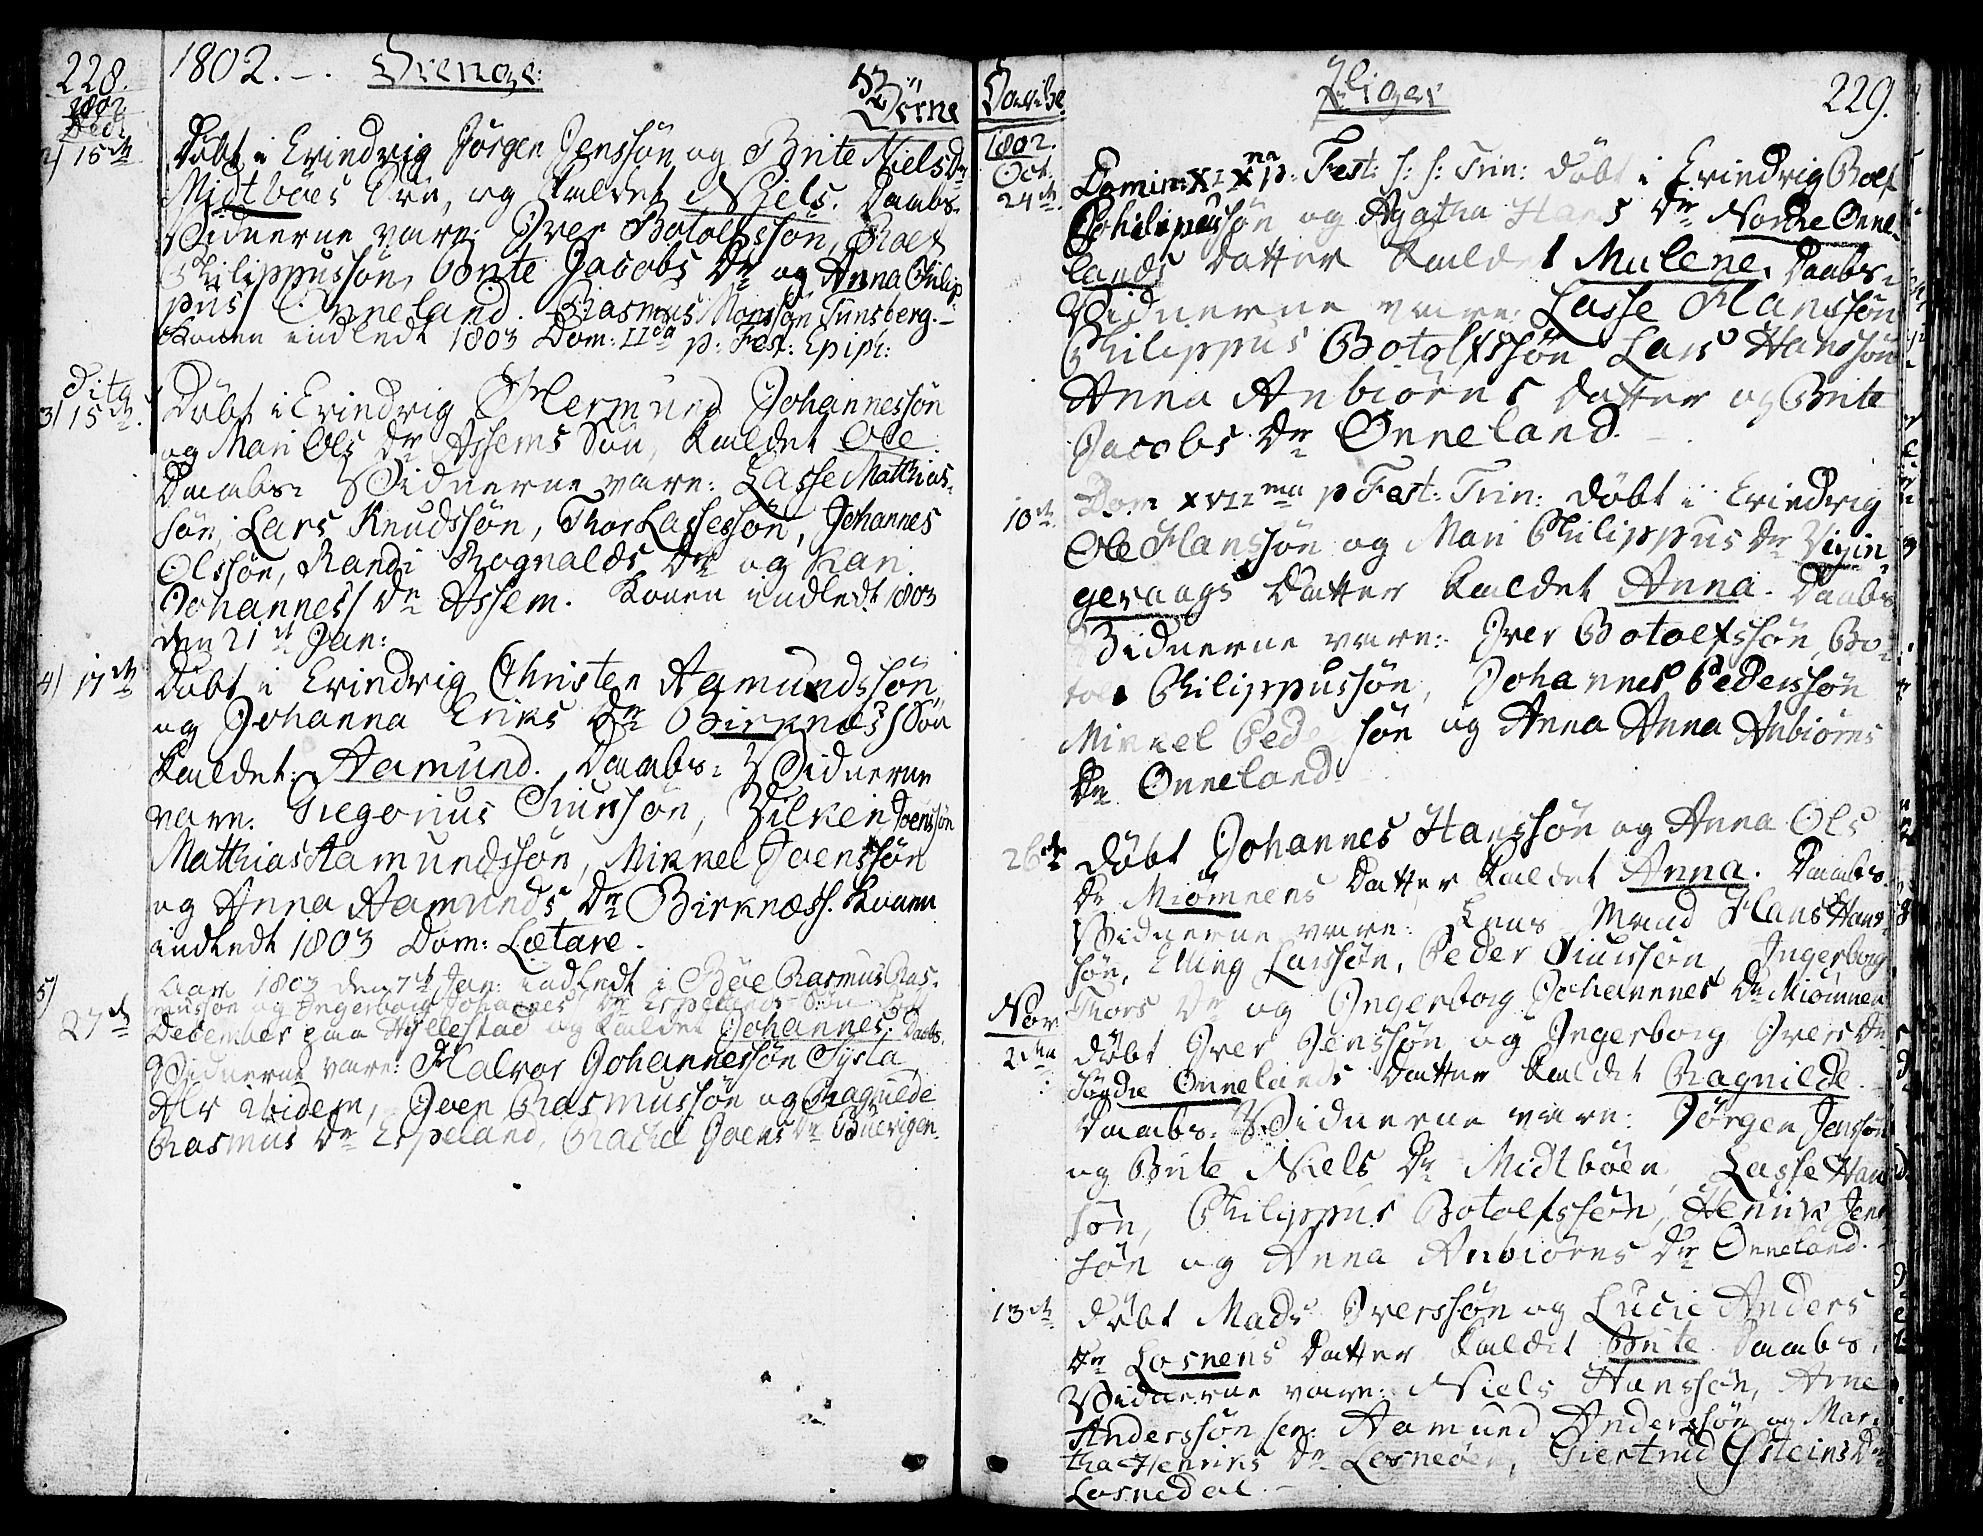 228.
1802. Drenge:
Börne
1802.
Dec.
2) 15de
Döbt i Evindvig Jörgen Jenssön og Brite Niels Dr
Midtböes Sön, og kaldet Niels. Daabs-
Vidnerne vare: Iver Botolfssön, Rolf
Philippussön, Brite Jacobs Dr og Anna Philip-
pus/ Önneland. Rasmus Monssön Tunsberg.
Konen indledt 1803 Dom: IIda p: Fest: Epiph:
dito
3) 15de
Döbt i Evindvig Mermund Johannessön
og Mari Ols Dr Assems Sön, kaldet Ole.
Daabs- Vidnerne vare: Lasse Mathias-
sön, Lars Knudssön, Thor Lassessön, Johannes
Olssön, Randi Rognalds Dr og Kari
Johannes/ Dr Assem. Konen indledt 1803
den 21de Jan:
4) 17de
Döbt i Evindvig Christen Aamundssön
og Johanna Eriks Dr Birknæs/ Sön
kaldet: Aamund. Daabs- Vidnerne
vare: Gregorius Siurssön, Vilken Joenssön
Matthias Aamundssön, Mikkel Joenssön
og Anna Aamunds Dr Birknæss. Konen
indledt 1803 Dom: Lætare.
5)
27de
Aar 1803 den 7de Jan: indledt i Böe Rasmus Ras-
mussön og Ingerborg Johannes Dr Espelands Sön
December paa Hyllestad og kaldet Johannes. Daabs-
Vidnerne vare: Halvor Johannessön Sysla,
ibidem, Joen Rasmussön og Ragnilde
Rasmus Dr Espeland, Rachel Joens Dr
Daabte
Piger
229.
1802.
Oct.
24de
Domin: XIXna p: Fest: s: s: Trin: döbt i Evindvig Rolf
Philippussön og Agatha Hans Dr Nordre Önne-
lands Datter kaldet Mulene. Daabs-
Vidnerne vare: Lasse Hanssön
Philippus Botolfssön Lars Hanssön
Anna Anbiörns Datter og Brite
Jacobs Dr Önneland.
10de
Dom XVIIma p Fest: Trin: döbt i Evindvig
Ole Hanssön og Mari Philippus Dr
geraags Datter kaldet Anna. Daabs
Vidnerne vare: Iver Botolfssön, Bo-
tolf Philippussön, Johannes Pederssön
Mikkel Pederssön og Anna Anna Anbiörns
Dr Önneland.
26de
döbt Johannes Hanssön og Anna Ols
Dr Miömnens Datter kaldet Anna. Daabs
Vidnerne vare: Hans Hans-
sön, Elling Larssön, Peder Siurssön, Ingerborg
Thors Dr og Ingerborg Johannes Dr Miömnen
Nov
2den
döbt Iver Jenssön og Ingerborg Ivers Dr
Söndre Önnelands Datter kaldet Ragnilde.
Daabs- Vidnerne vare: Jörgen Jenssön
og Brite Niels Dr Midtböen, Lasse Hans
sön, Philippus Botolfssön, Henrik Jens
sön og Anna Anbiörns Dr Önneland.
13de
döbt Mads Iverssön og Lucie Anders
Dr Losnens Datter kaldet Brite. Daabs-
Vidnerne vare: Niels Hanssön, Arne
Anderssön sen: Aamund Anderssön og Mar-
tha Henriks Dr Losneöen, Giertrud Östeins Dr
Losnedal.